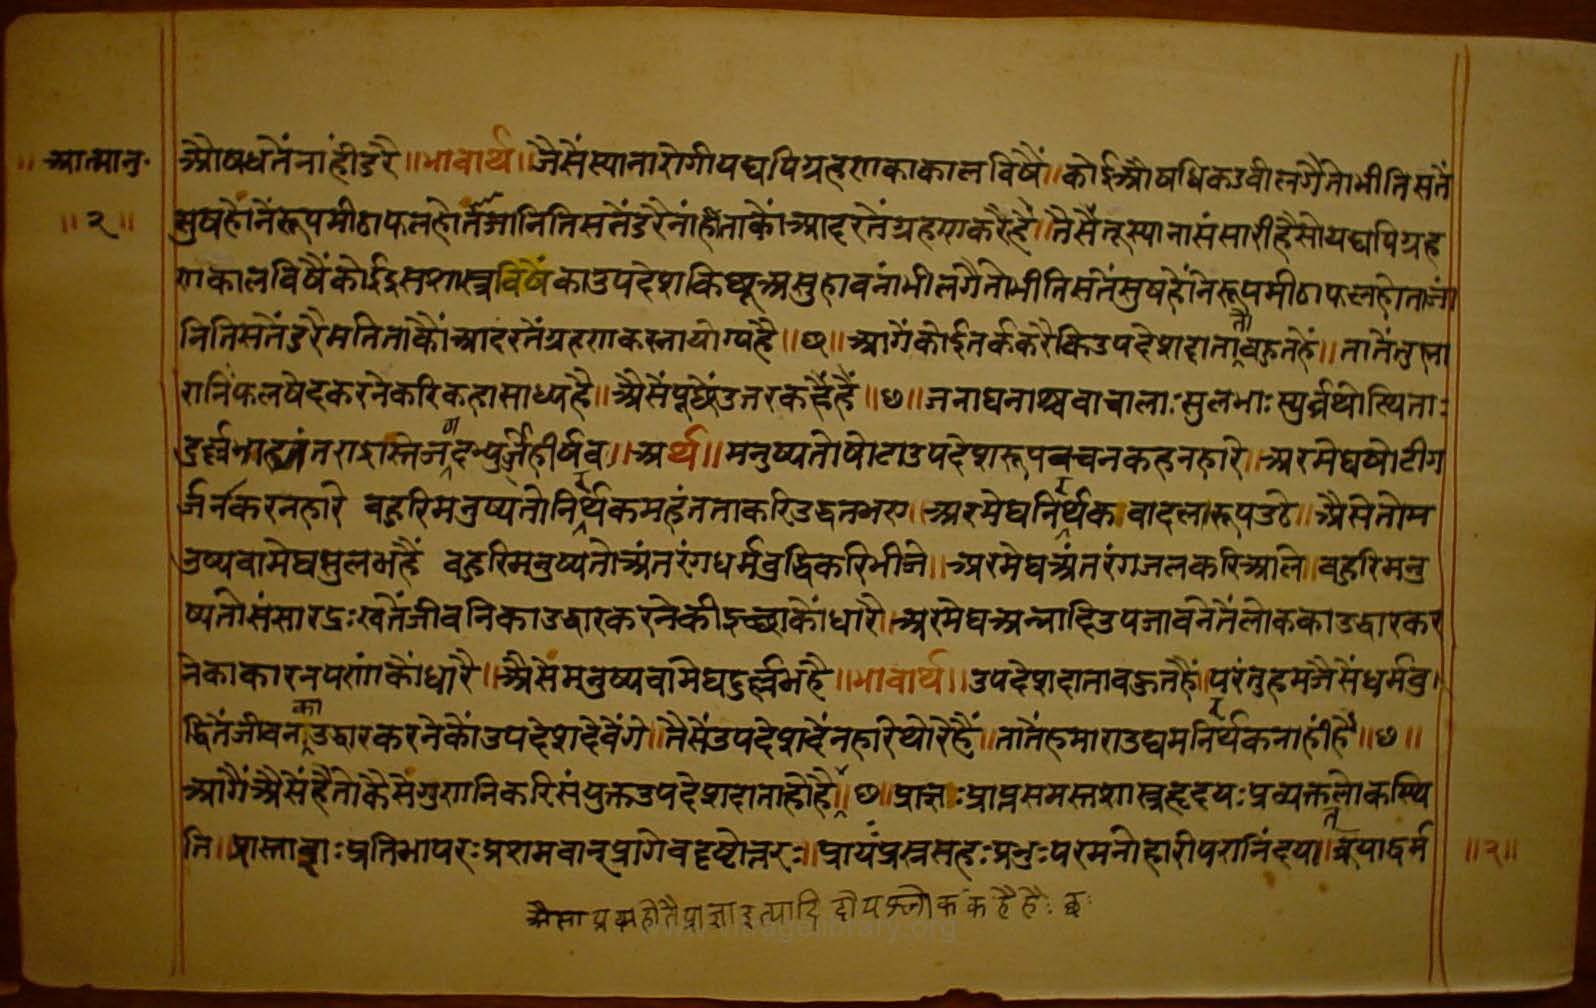 ॥ आत्मानु॰
॥ २ ॥
औषधतैं नांही डरै ॥ भावार्थ ॥ जैसैं स्याना रोगी यद्यपि ग्रहण का काल विषैं ॥ कोई औषधि कडवी लगै तो भी तिसतैं
सुष होनेंरूप मीठा फल होतैं जानि तिसतैं डरै नांही ताकौं आदरतैं ग्रहण करै है ॥ तैसैं तू स्याना संसारी है सो यद्यपि ग्रह
ण काल विषैं कोई इस शास्त्र विषैं का उपदेश किछू असुहावनां भी लगै तो भी तिसतैं सुष होनेंरूप मीठा फल होता जां
नि तिसतैं डरै मति ताकौं आदरतैं ग्रहण करना योग्य है ॥ ५ ॥ आगें कोई तर्क करै कि उपदेशदाता तौ बहुत हैं ॥ तातैं तुह्मा
रा निःफल षेद करने करि कहा साध्य है ॥ औसैं पूछैं उत्तर कहैं हैं ॥ छ ॥ जनाघनाश्च वाचालाः सुलभाः स्युर्वृथोत्थिताः
दुर्ल्लभा ह्यंतरार्द्रास्ते जगदभ्युज्जिहीर्षव ॥ अर्थ ॥ मनुष्य तो षोटा उपदेशरूप वचन कहनहारे ॥ अर मेघ षोटी ग
र्जर्न करनहारे बहुरि मनुष्य तो निरर्थक महंतता करि उद्धत भए ॥ अर मेघ निरर्थक वादलारूप उठे ॥ औसे तो म
नुष्य वा मेघ सुलभ हैं बहुरि मनुष्य तो अंतरंग धर्मबुद्धि करि भीजे ॥ अर मेघ अंतरंग जल करि आले ॥ बहुरि मनु
ष्य तो संसार दुःखतैं जीवनिका उद्धार करनेकी इच्छाकौं धारै ॥ अर मेघ अन्नादि उपजावनेतैं लोकका उद्धार कर
नेका कारनपणांकौं धारै ॥ औसैं मनुष्य वा मेघ दुर्ल्लभ है ॥ भावार्थ ॥ उपदेशदाता बहुत हैं ॥ परंतु हम जैसैं धर्मबु
द्धितैं जीवनका उद्धार करनेकौं उपदेश देवेंगे ॥ तैसैं उपदेश देंनहारे थोरे हैं ॥ तातैं हमारा उद्यम निरर्थक नाहीं है ॥ छ ॥
आगैं औसैं हैं तो कैसैं गुणनि करि संयुक्त उपदेशदाता हो है ॥ छ ॥ प्राज्ञः प्राप्तसमस्तशास्त्रहृदयः प्रव्यक्तलोकस्थि
ति ॥ प्रास्ताशाः प्रतिभापरः प्रशमवान् प्रागेव दृष्टोत्तरः ॥ प्रायः प्रश्नसहः प्रभुः परमनोहारी परानिंदया ॥ ब्रूयाद्धर्म
॥ २ ॥
औसा प्रश्न होतै प्राज्ञ इत्यादि दोय श्लोक कहै है : छः